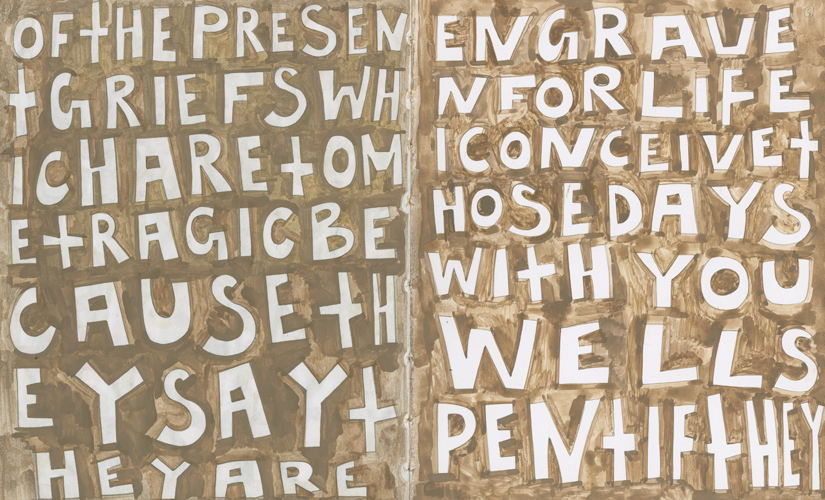 OF THE PRESEN
T GRIEFS WH
ICH ARE TO M
E TRAGIC BE
CAUSE TH
EY SAY T
HEY ARE
ENGRAVE
N FOR LIFE
I CONCEIVE T
HOSE DAYS
WITH YOU
WELL S
PENT IF THEY